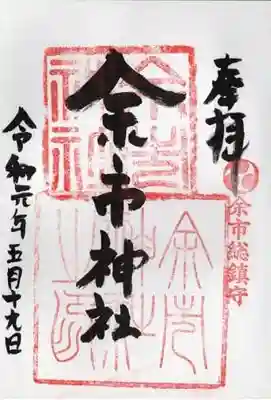 奉拝
余市総鎮守
余市神社
令和元年五月十九日